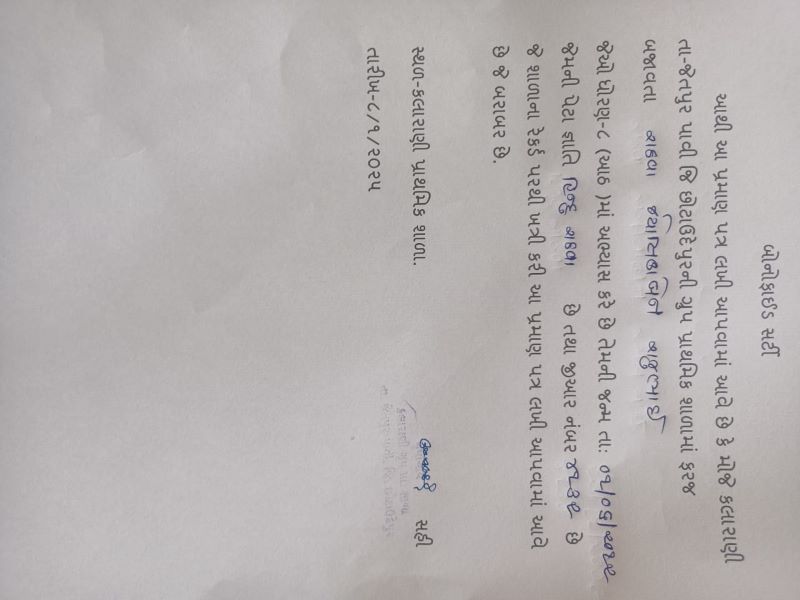 બોનોફાઈડ સર્ટી
આથી આ પ્રમાણ પત્ર લખી આપવામાં આવે છે કે મોજે કલારાણી
તા-જેતપુર પાવી જિ છોટાઉદેપુરની ગ્રુપ પ્રાથમિક શાળામાં ફરજ
બજાવતા
જેઓ ધોરણ-૮ (આઠ )માં અભ્યાસ કરે છે તેમની જન્મ તા:
જેમની પેટા જ્ઞાતિ હિન્દુ છે તથા જીઆર નંબર છે
જે શાળાના રેકર્ડ પરથી ખત્રી કરી આ પ્રમાણ પત્ર લખી આપવામાં આવે
છે જે બરાબર છે.
સ્થળ-કલારાણી પ્રાથમિક શાળા.
સહી
તારીખ-૮/૧/૨૦૨૫